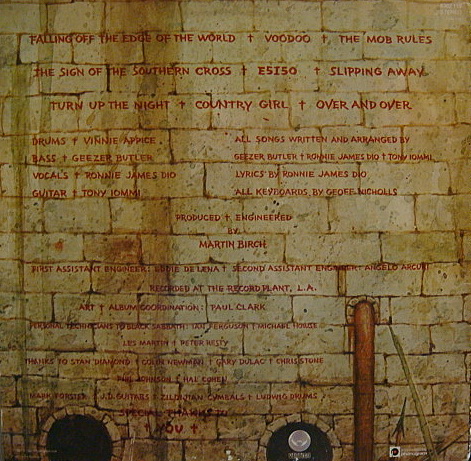 FALLING OFF THE EDGE OF THE WORLD † VOODOO † THE MOB RULES
THE SIGN OF THE SOUTHERN CROSS † E5150 † SLIPPING AWAY
TURN UP THE NIGHT † COUNTRY GIRL † OVER AND OVER
DRUMS † VINNIE APPICE
BASS † GEEZER BUTLER
VOCALS † RONNIE JAMES DIO
GUITAR † TONY IOMMI
ALL SONGS WRITTEN AND ARRANGED BY
GEEZER BUTLER † RONNIE JAMES DIO † TONY IOMMI
LYRICS BY RONNIE JAMES DIO
ALL KEYBOARDS BY GEOFF NICHOLLS
PRODUCED † ENGINEERED
BY
MARTIN BIRCH
FIRST ASSISTANT ENGINEER: EDDIE DELENA † SECOND ASSISTANT ENGINEER: ANGELO ARCURI
RECORDED AT THE RECORD PLANT, L.A.
ART † ALBUM COORDINATION: PAUL CLARK
PERSONAL TECHNICIANS TO BLACK SABBATH: IAN FERGUSON † MICHAEL HOWSE
LES MARTIN † PETER RESTY
THANKS TO STAN DIAMOND † COLIN NEWMAN † GARY DULAC † CHRIS STONE
PHIL JOHNSON † HAL COHEN
MARK FORSTER † J.D. GUITARS † ZILDJIAN CYMBALS † LUDWIG DRUMS
SPECIAL THANKS TO
† YOU †
phonogram